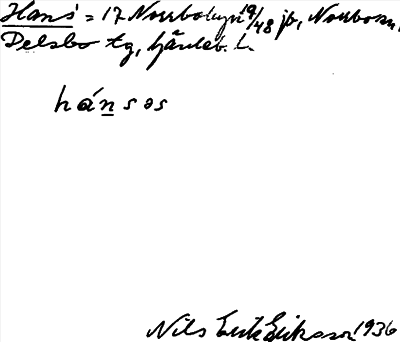 Hans' = 17 Norrbobyn 19/48 jb, Norrbobn,
Delsbo tg, Gävleb. l.
hánsəs
Nils Erik Eriksson 1936